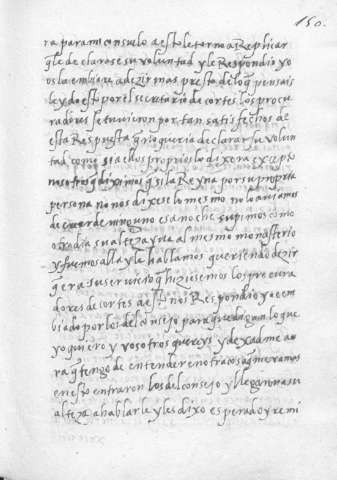 150.
ra para mi consulo a esto le torno a Replicar
q̃ le declarase su voluntad y le Respondio yo
os la embiare a dezir mas presto de lo q̃ pensais
leydo esto por el secretario de cortes los procu
radores se tuvieron por tan satisfechos de
esta Respuesta q̃ no queria declarar su volun
tad como si a ellos propios lo dixera excepto
nosotros q̃ diximos q̃ si la Reyna por su propria
persona no nos dixese lo mesmo no lo aviamos
de creer de ninguno esa noche supimos como
otro dia su alteza yva al mesmo monasterio
y fuimos alla y le hablamos queriendo dezir
q̃ era su servicio q̃ hiziesemos los procura
dores de cortes a esto nos Respondio yo e em
biado por los del consejo para que digan lo que
yo quiero y vosotros quereys y dexadme ao
ra q̃ tengo de entender en otra cosa q̃ me va mas
en esto entraron los del consejo y llegaron a su
alteza a hablarle y les dixo esperad oyre mi